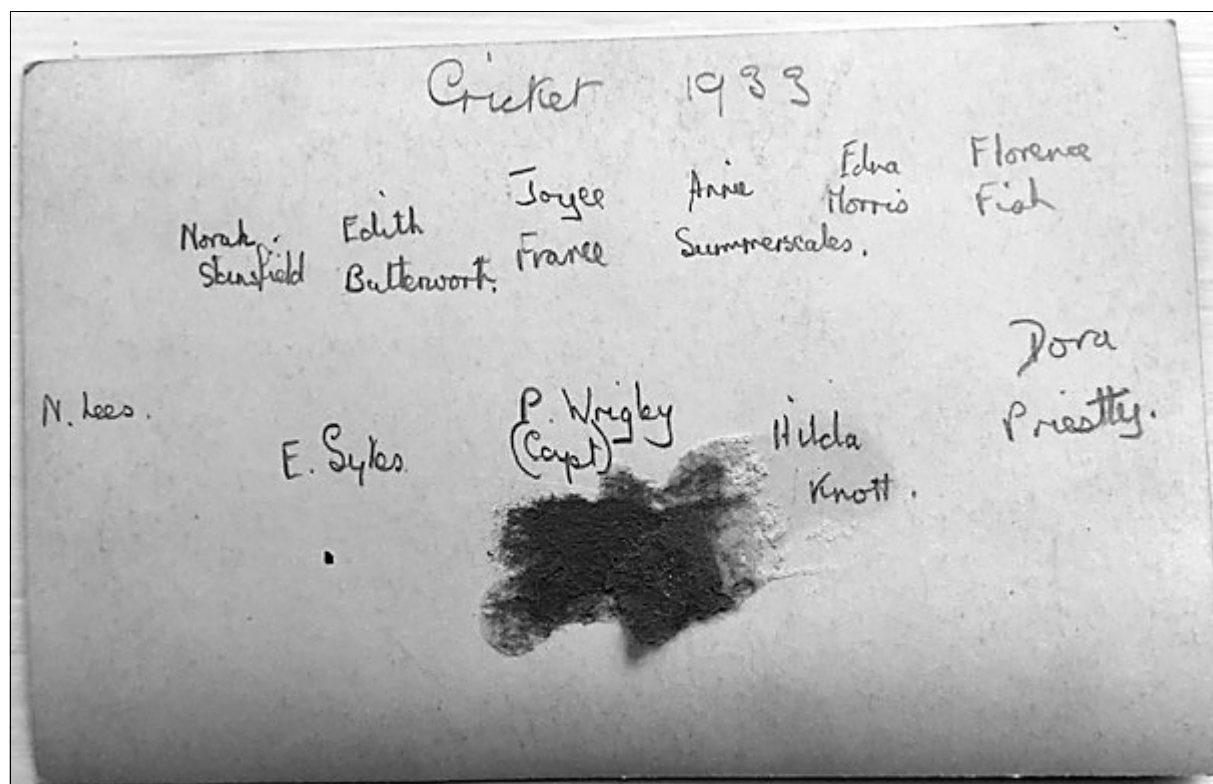 Cricket 1933
Norah Stansfield
Edith Butterwort.
Joyce France
Annie Summerscales.
Edna Morris
Florence Fish
N. Lees.
E. Sykes
P. Wrigley (Capt)
Hilda Knott.
Dora Priestly.